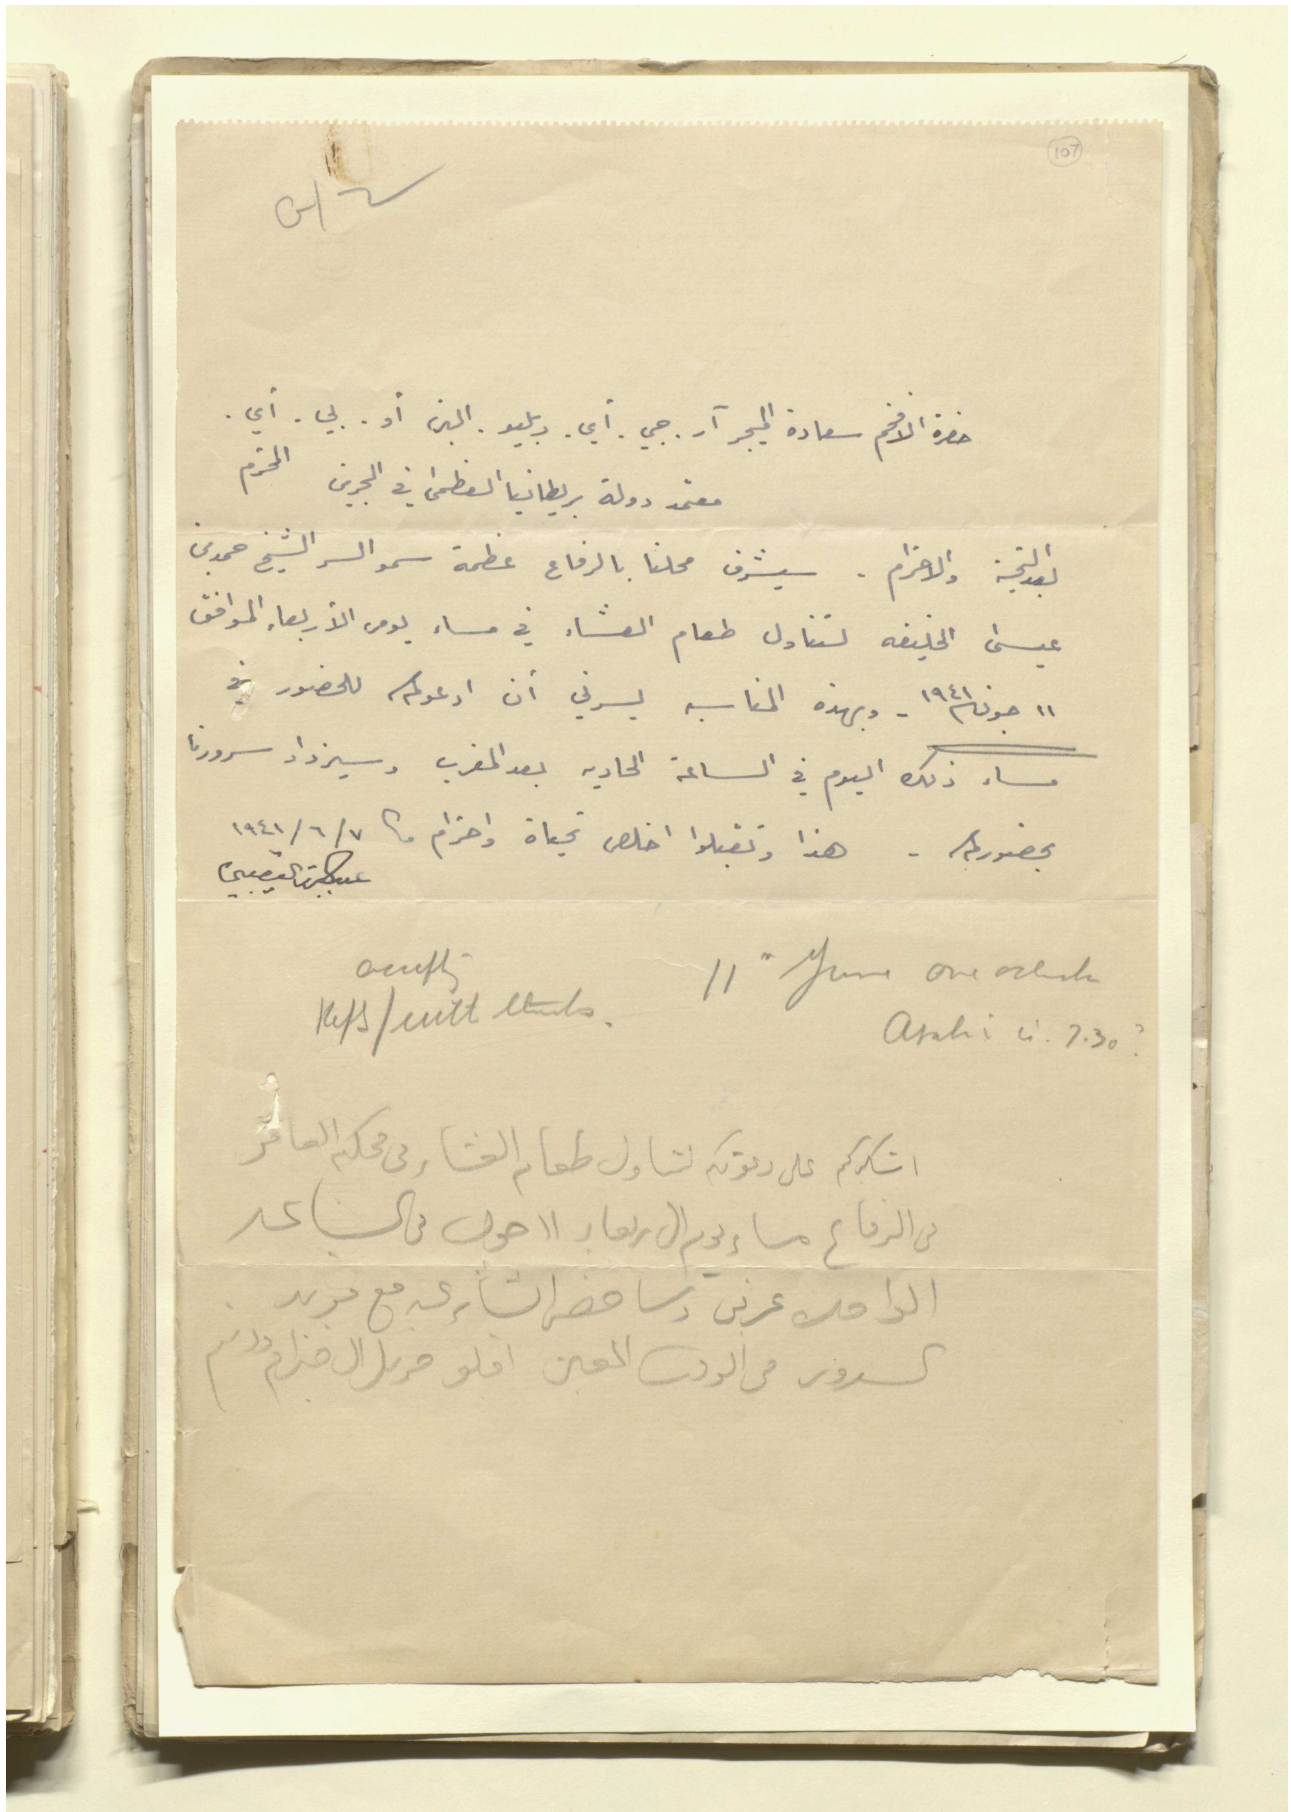 107
حضرة الافخم سعادة الميجر آر. جي. أي. دبليو. البن أو. بي. أي.
معتمد دولة بريطانيا العظمى في البحرين المحترم
بعد التحية والاحترام - سيشرف محلنا بالرفاع عظمة سمو السر الشيخ حمد بن
عيسى الخليفه لتناول طعام العشاء في مساء يوم الأربعاء الموافق
١١ جون ١٩٤١ - وبهذه المناسبه يسرني أن ادعوكم للحضور في
مساء ذلك اليوم في الساعة الحاديه بعد المغرب وسيزداد سرورنا
بحضوركم - هذا وتقبلوا اخلص تحياة واحترام ٧/٦/١٩٤١
القصيبي
11" June one oclock
with thanks.
7.30?
اشكركم على دعوتكم لتناول طعام العشاء في محلكم العامر
في الرفاع مساء يوم الاربعاء ١١ جون في الساعة
الواحده عربي وساحضر انشاء الله مع مزيد
السرور في الوقت المعين اقبلو مزيد الاحترام ودمتم